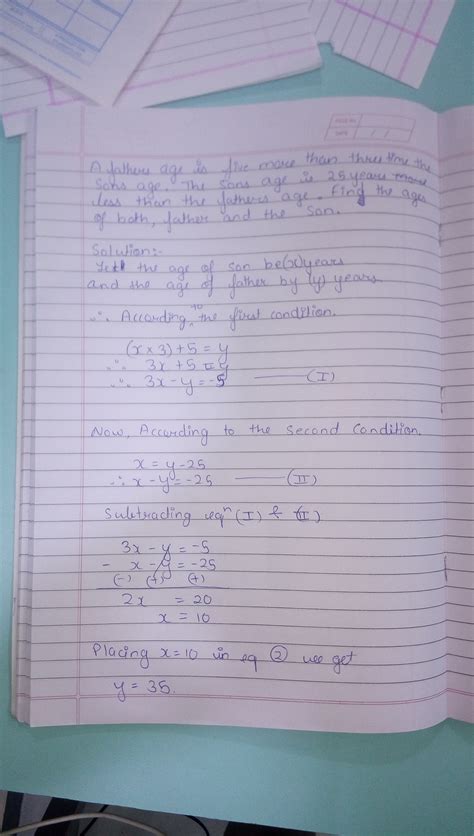 PAGE NO.
DATE / /
A fathers age is five more than three time the
sons age. The sons age is 25 years more
less than the fathers age. Find the ages
of both, father and the son.
Solution:-
Let the age of son be (x) years
and the age of father by (y) years
∴ According to the first condition.
(x × 3) + 5 = y
∴ 3x + 5 = y
∴ 3x - y = -5 —— (I)
Now, According to the second Condition.
x = y - 25
∴ x - y = -25 —— (II)
Subtracting eqn (I) & (II)
3x - y = -5
- x - y = -25
(-) (+) (+)
2x = 20
x = 10
Placing x = 10 in eq ② we get
y = 35.